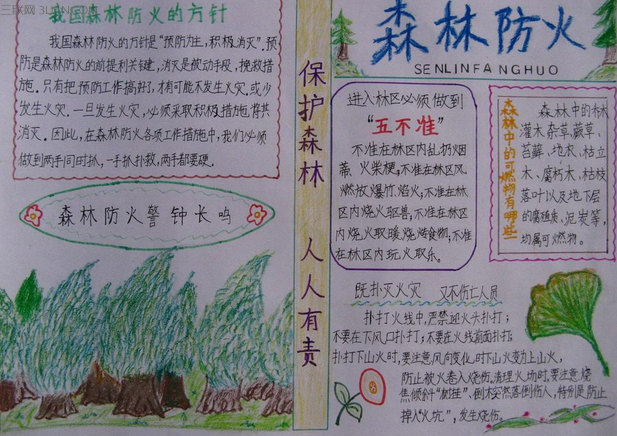 三联网 3LIAN.COM
我国森林防火的方针
我国森林防火的方针是“预防为主，积极消灭”。预
防是森林防火的前提和关键，消灭是被动手段，挽救措
施。只有把预防工作搞好了，才有可能不发生火灾或少
发生火灾。一旦发生火灾，必须采取积极措施将其
消灭。因此，在森林防火各项工作措施中，我们必须
做到两手同时抓，一手抓扑救，两手都要硬。
森林防火警钟长鸣
保护森林 人人有责
森林防火
SENLINFANGHUO
进入林区必须做到
“五不准”
不准在林区内乱扔烟
蒂、火柴梗，不准在林区
燃放爆竹、焰火；不准在林
区内烧火驱兽；不准在林区
内烧火取暖、烧烤食物；不准
在林区内玩火取乐。
森林中的可燃物有哪些
森林中的林
灌木杂草、蕨草、
苔藓、地衣、枯立
木、腐朽木、枯枝
落叶以及地下层
的腐殖质、泥炭等，
均属可燃物。
既扑灭火灾 又不伤亡人员
扑打火线中，严禁迎火头扑打；
不要在下风口扑打；不要在火线前面扑打；
扑打下山火时，要注意风向变化，时下山火变为上山火，
防止被火卷入烧伤。清理火场时，要注意烧
焦倾斜“树挂”、倒木突然落倒伤人，特别是防止
掉入“火坑”，发生烧伤。